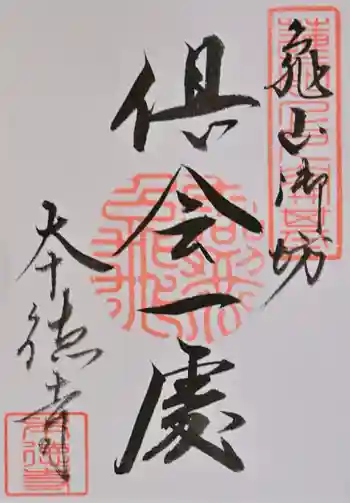 亀山御坊
倶会一處
本徳寺